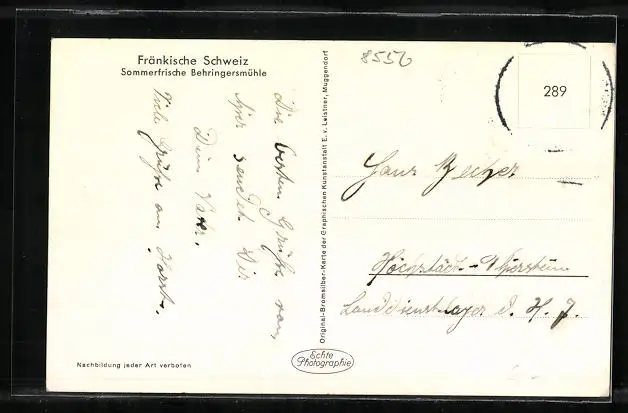 Fränkische Schweiz
Sommerfrische Behringersmühle
Die besten Grüße von
hier sendet Dir
Dein Vater.
Viele Grüße an Horst.
Nachbildung jeder Art verboten
Original-Bromsilber-Karte der Graphischen Kunstanstalt E. v. Leistner, Muggendorf
Echte
Photographie
8556
289
Hans
Höchstädt - Thierstein
Landdienstlager d. H. J.